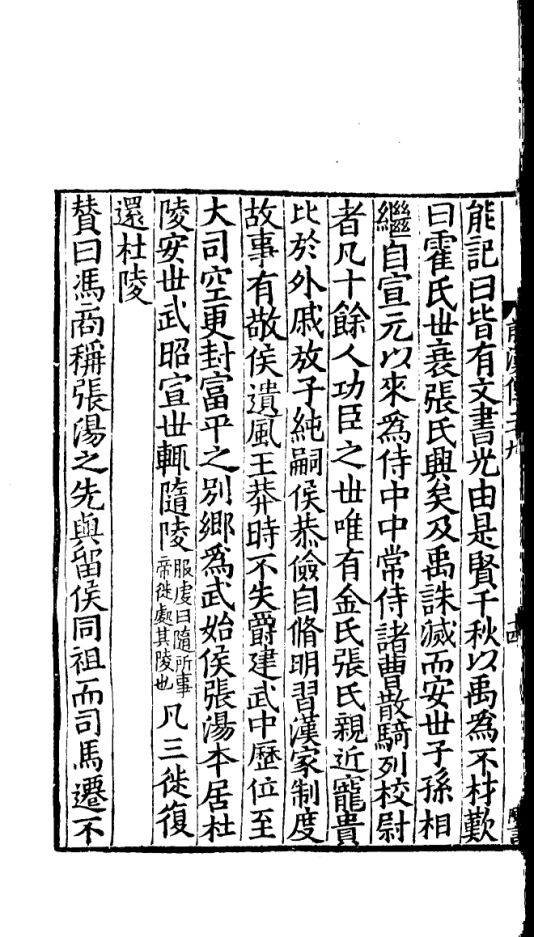 前漢傳二十九
十四
能記曰皆有文書光由是賢千秋以禹為不材歎
曰霍氏世衰張氏興矣及禹誅滅而安世子孫相
繼自宣元以來為侍中中常侍諸曹散騎列校尉
者凡十餘人功臣之世唯有金氏張氏親近寵貴
比於外戚放子純嗣侯恭儉自脩明習漢家制度
故事有敬侯遺風王莽時不失爵建武中歷位至
大司空更封富平之別鄉為武始侯張湯本居杜
陵安世武昭宣世輒隨陵服虔曰隨所事帝徙處其陵也凡三徙復
還杜陵
贊曰馮商稱張湯之先與留侯同祖而司馬遷不